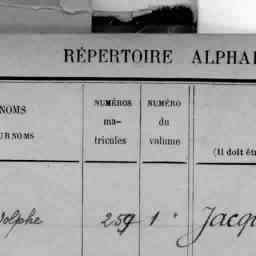 RÉPERTOIRE ALPHA
NOMS
URNOMS
NUMÉROS
ma-
tricules
NUMÉRO
du
volume
(Il doit êt
olphe 259 1 Jacq